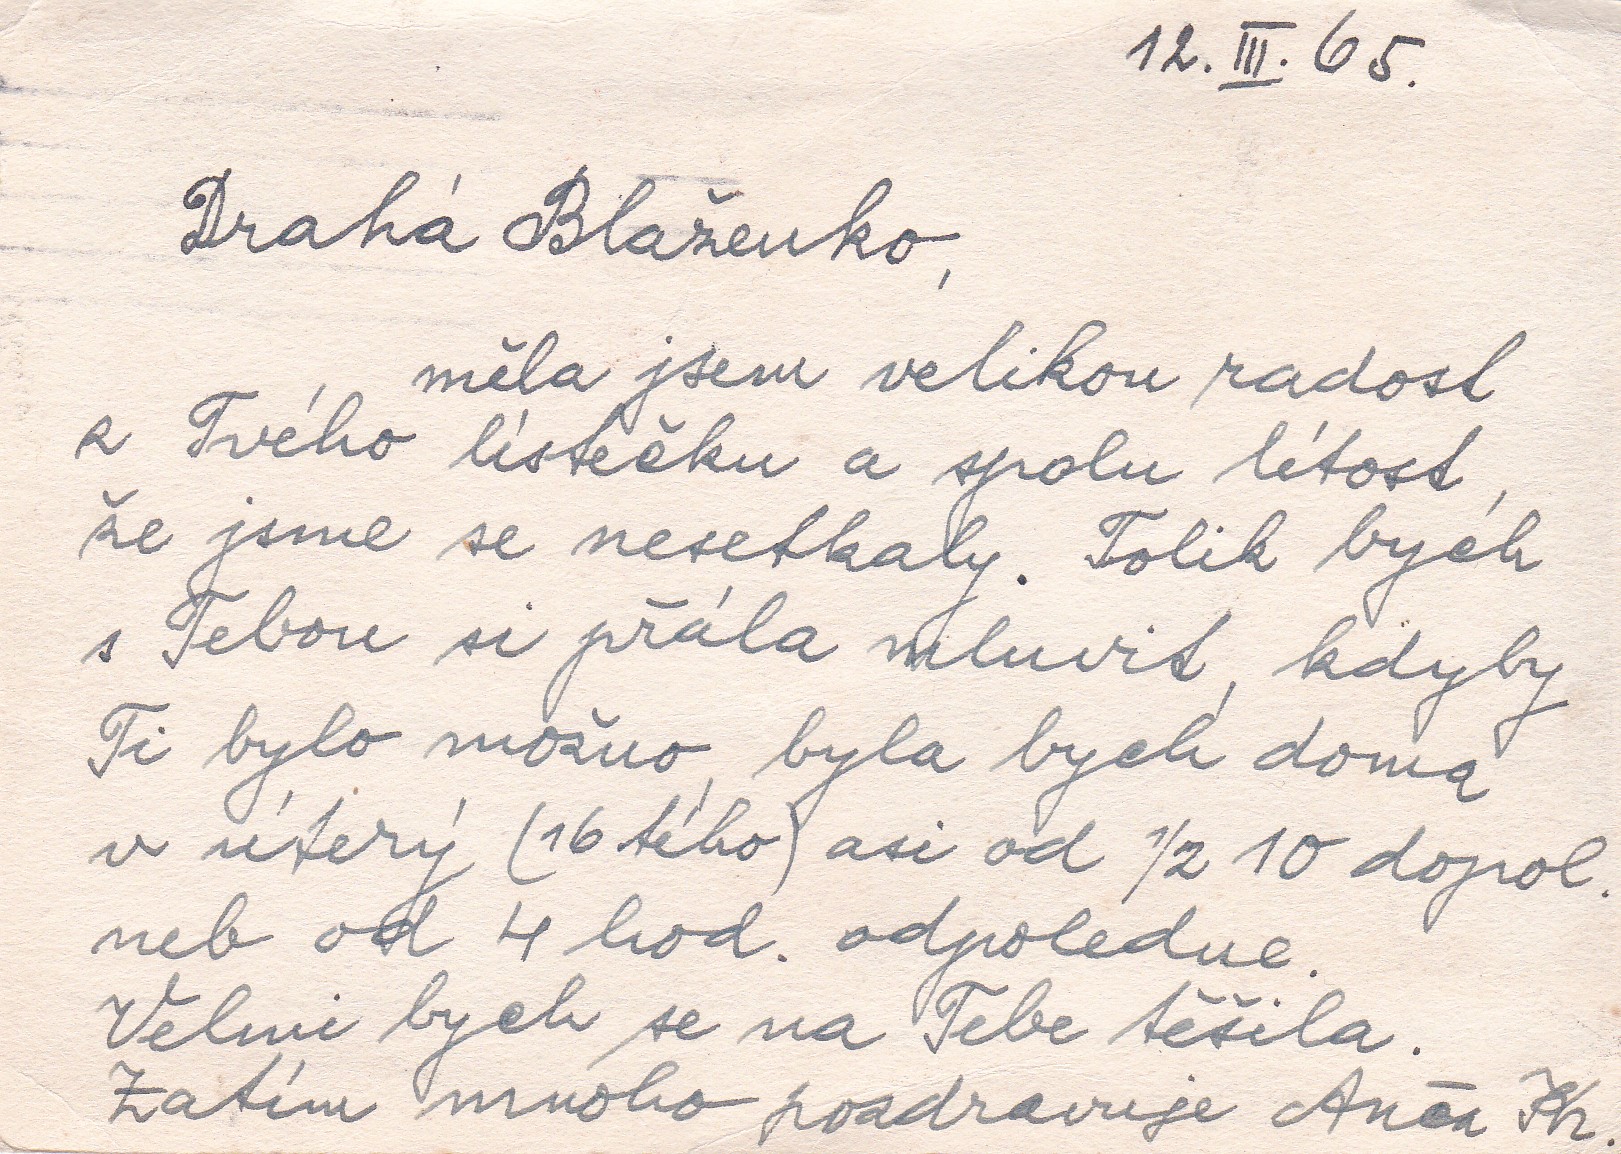 12. III. 65.
Drahá Blaženko,
měla jsem velikou radost
z Tvého lístečku a spolu lítost,
že jsme se nesetkaly. Tolik bych
s Tebou si přála mluvit, kdyby
Ti bylo možno, byla bych doma
v úterý (16 tého) asi od 1/2 10 dopol.
neb od 4 hod. odpoledne.
Velmi bych se na Tebe těšila.
Zatím mnoho pozdravuje Anča